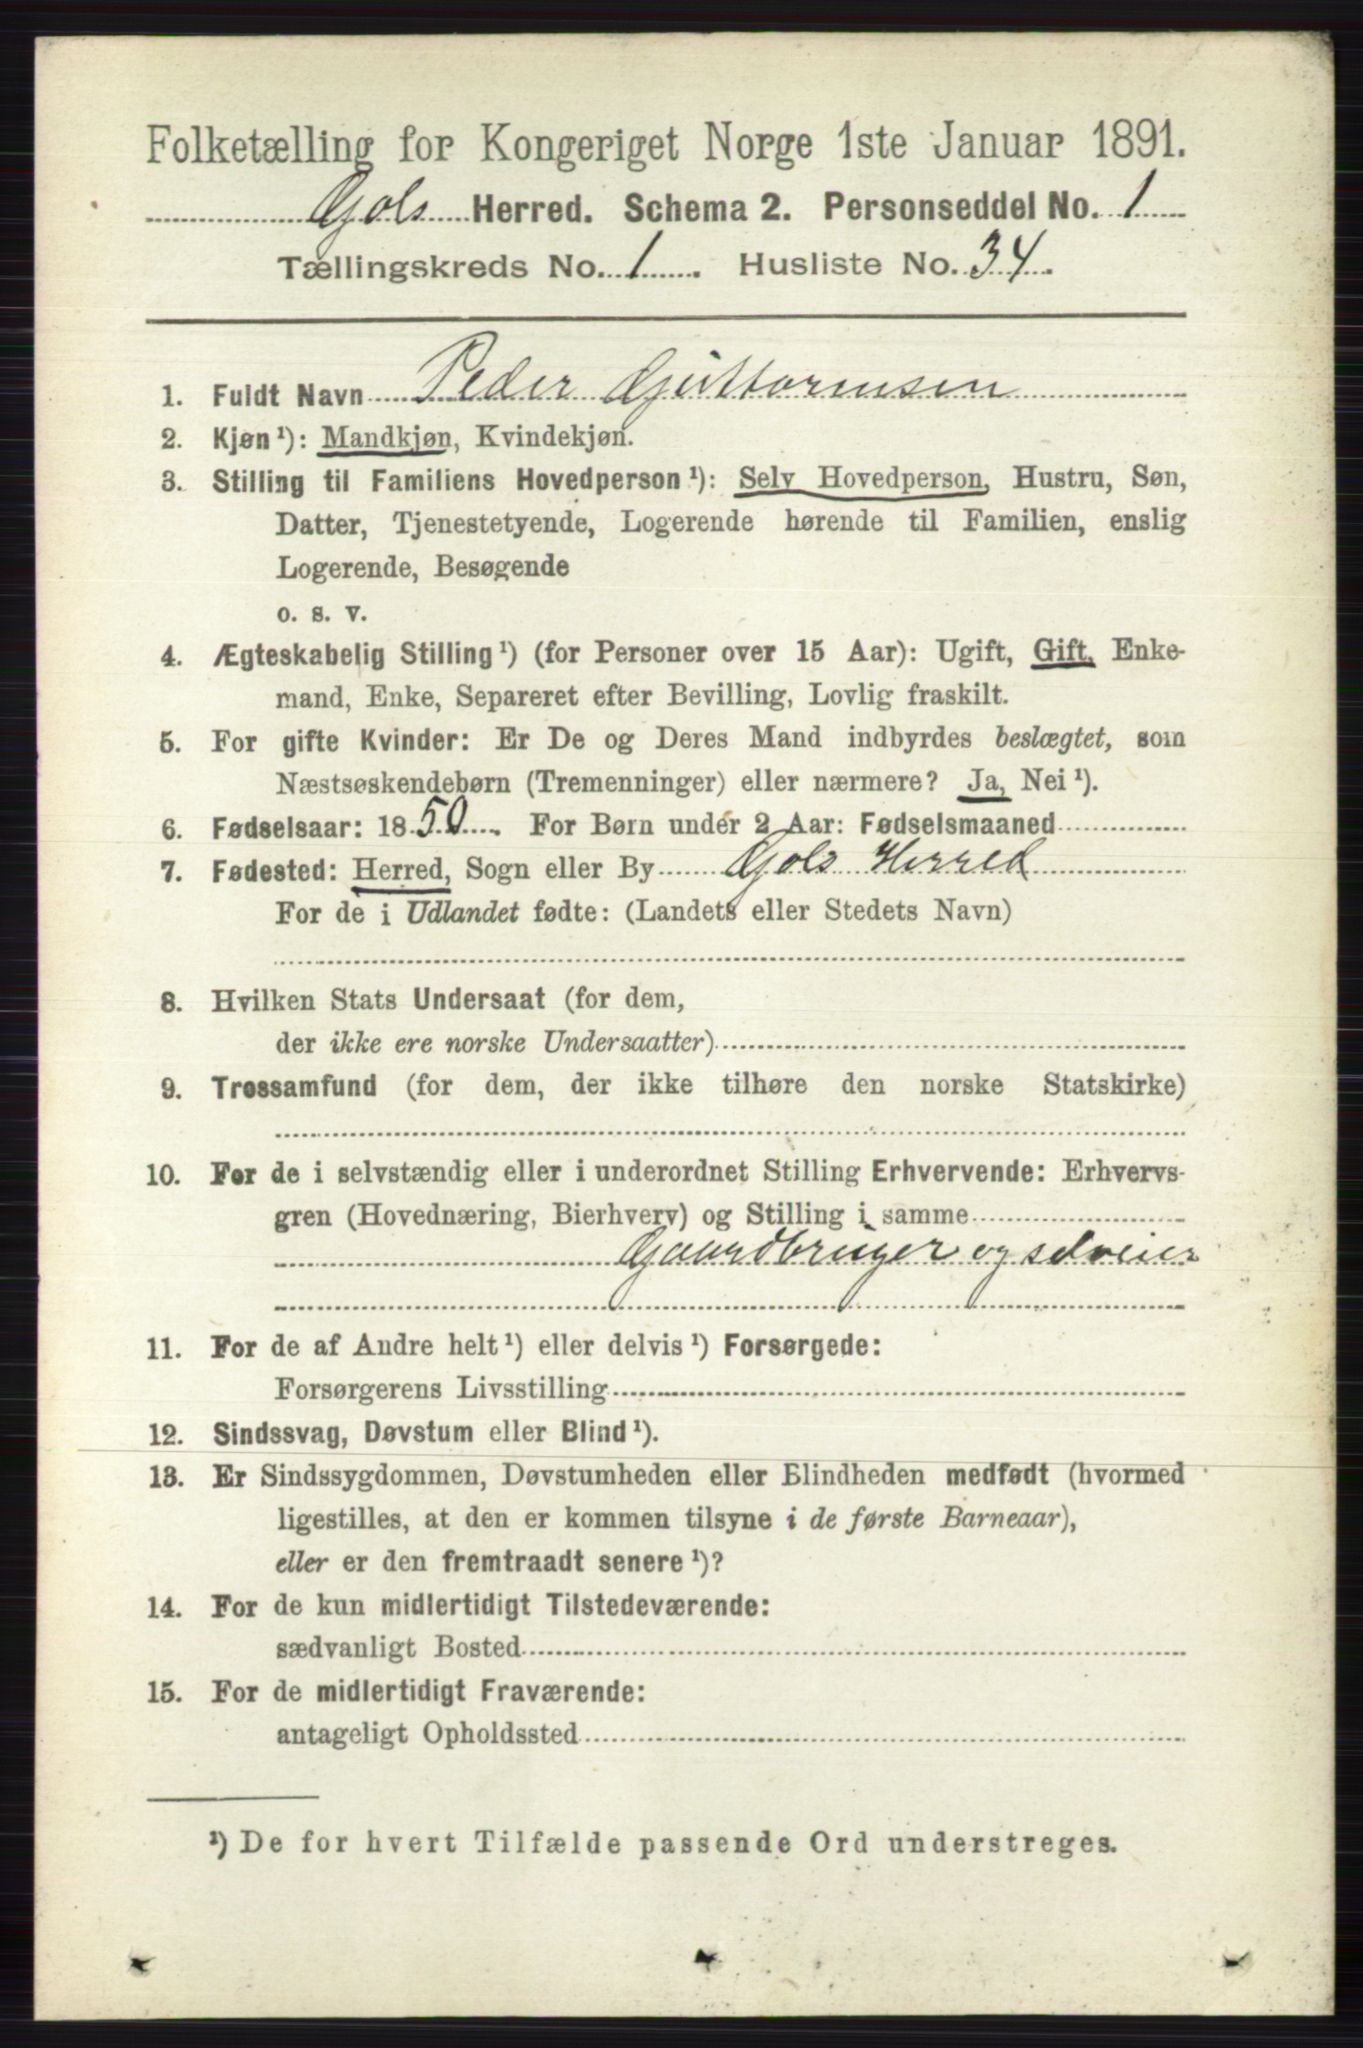 Folketælling for Kongeriget Norge 1ste Januar 1891.
Gols Herred. Schema 2. Personseddel No. 1
Tællingskreds No. 1. Husliste No. 34.
1. Fuldt Navn Peder Guttormsen
2. Kjøn ¹): Mandkjøn, Kvindekjøn.
3. Stilling til Familiens Hovedperson ¹): Selv Hovedperson, Hustru, Søn,
Datter, Tjenestetyende, Logerende hørende til Familien, enslig
Logerende, Besøgende
o. s. v.
4. Ægteskabelig Stilling ¹) (for Personer over 15 Aar): Ugift, Gift, Enke-
mand, Enke, Separeret efter Bevilling, Lovlig fraskilt.
5. For gifte Kvinder: Er De og Deres Mand indbyrdes beslægtet, som
Næstsøskendebørn (Tremenninger) eller nærmere? Ja, Nei ¹).
6. Fødselsaar: 1850. For Børn under 2 Aar: Fødselsmaaned
7. Fødested: Herred, Sogn eller By Gols Herred
For de i Udlandet fødte: (Landets eller Stedets Navn)
8. Hvilken Stats Undersaat (for dem,
der ikke ere norske Undersaatter)
9. Trossamfund (for dem, der ikke tilhøre den norske Statskirke)
10. For de i selvstændig eller i underordnet Stilling Erhvervende: Erhvervs-
gren (Hovednæring, Bierhverv) og Stilling i samme
Gaardbruger og selveier
11. For de af Andre helt ¹) eller delvis ¹) Forsørgede:
Forsørgerens Livsstilling
12. Sindssvag, Døvstum eller Blind ¹).
13. Er Sindssygdommen, Døvstumheden eller Blindheden medfødt (hvormed
ligestilles, at den er kommen tilsyne i de første Barneaar),
eller er den fremtraadt senere ¹)?
14. For de kun midlertidigt Tilstedeværende:
sædvanligt Bosted
15. For de midlertidigt Fraværende:
antageligt Opholdssted
¹) De for hvert Tilfælde passende Ord understreges.